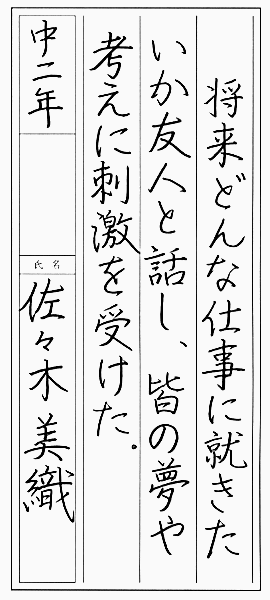 将来どんな仕事に就きた
いか友人と話し、皆の夢や
考えに刺激を受けた.
中二年
氏名
佐々木美織